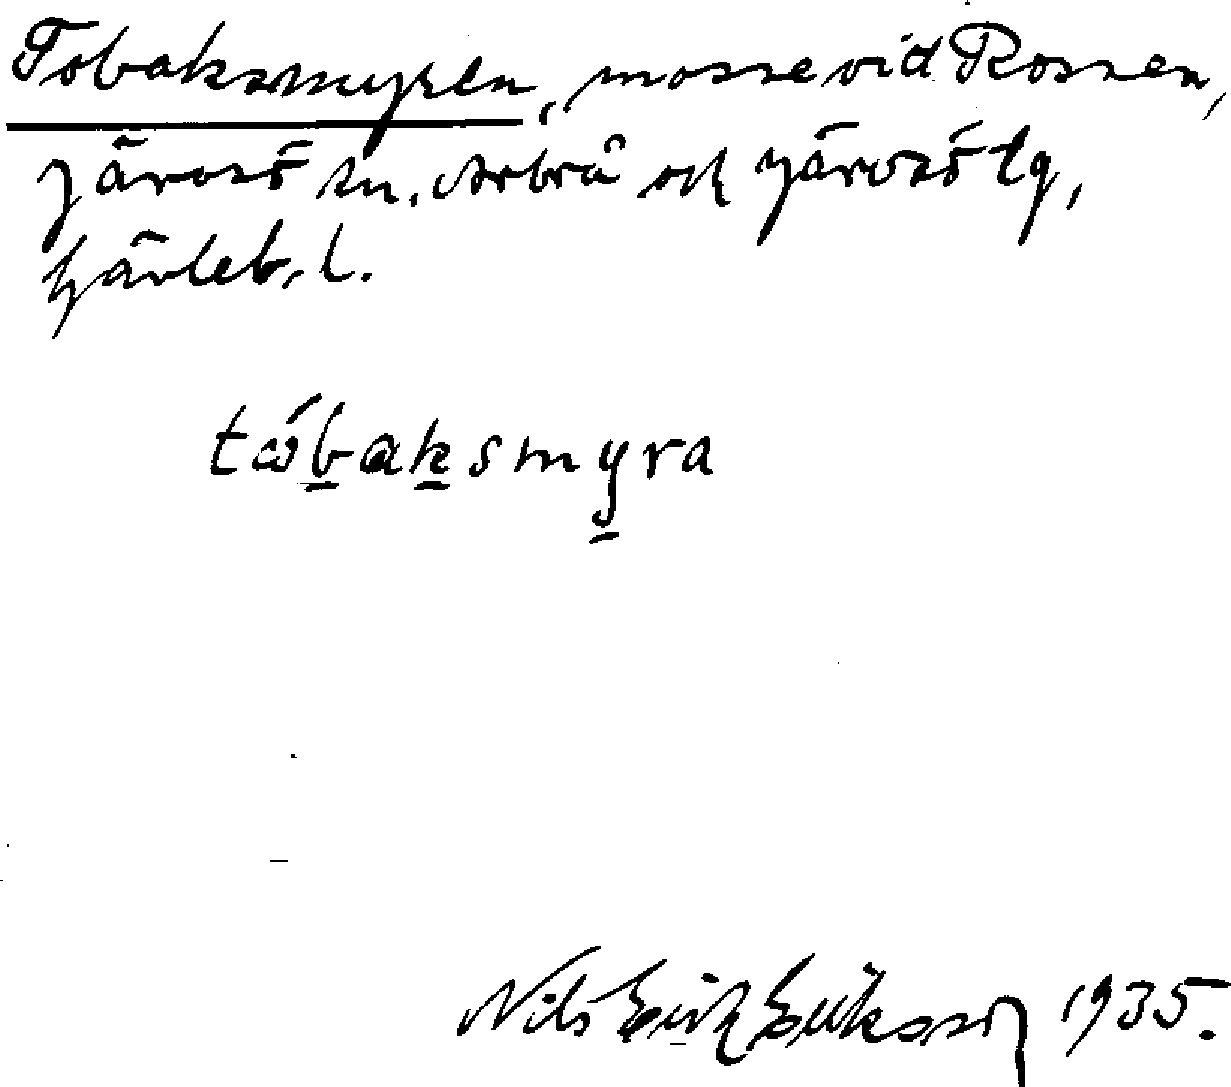 Tobaksmyren, mosse vid Rossen,
Järvsö sn. Arbrå och Järvsö tg,
Gävleb. l.
tώb̲ak̲smy̲ra
Nils Erik Eriksson 1935.